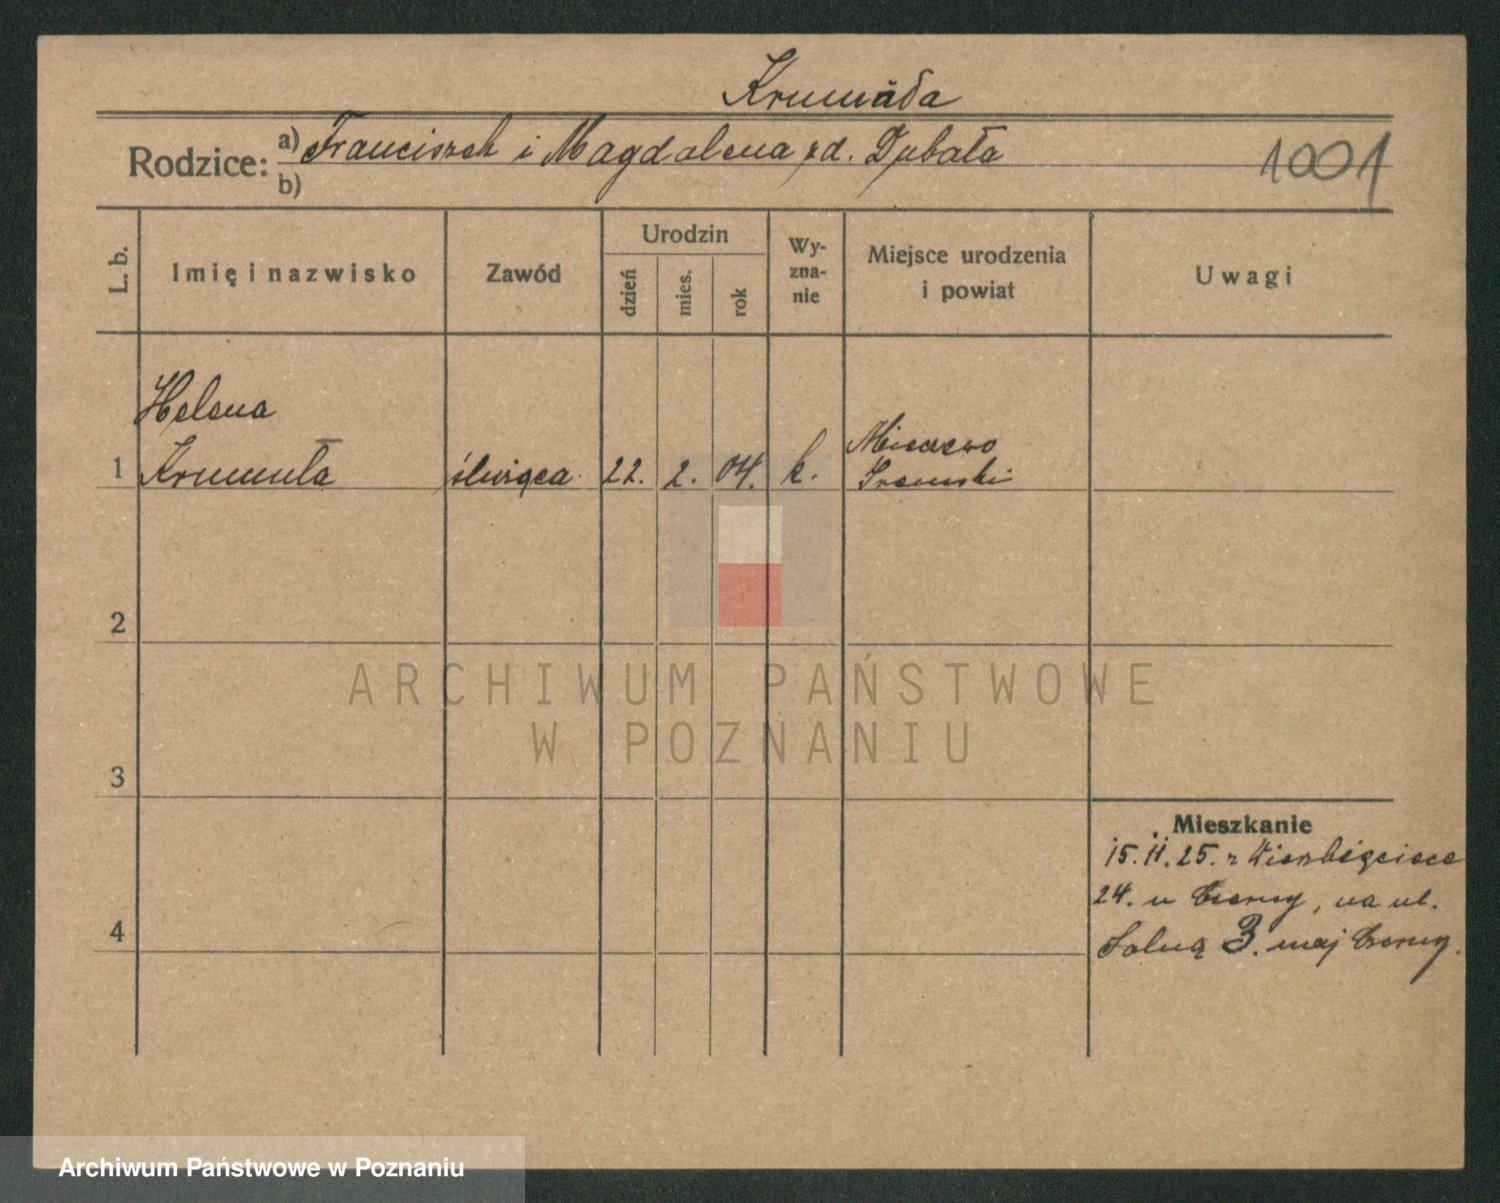 Krumuła
Rodzice: a) Franciszek i Magdalena zd. Dubała
b)
1001
L. b.
Imię i nazwisko
Zawód
Urodzin
dzień
mies.
rok
Wy-
zna-
nie
Miejsce urodzenia
i powiat
Uwagi
Helena
1 Krumuła służąca 22. 2. 04. k.
Śremski
2
3
4
Mieszkanie
15. 11. 25. z Wierzbięcice
24. u, na ul.
Solną 3. maj
ARCHIWUM PAŃSTWOWE
W POZNANIU
Archiwum Państwowe w Poznaniu